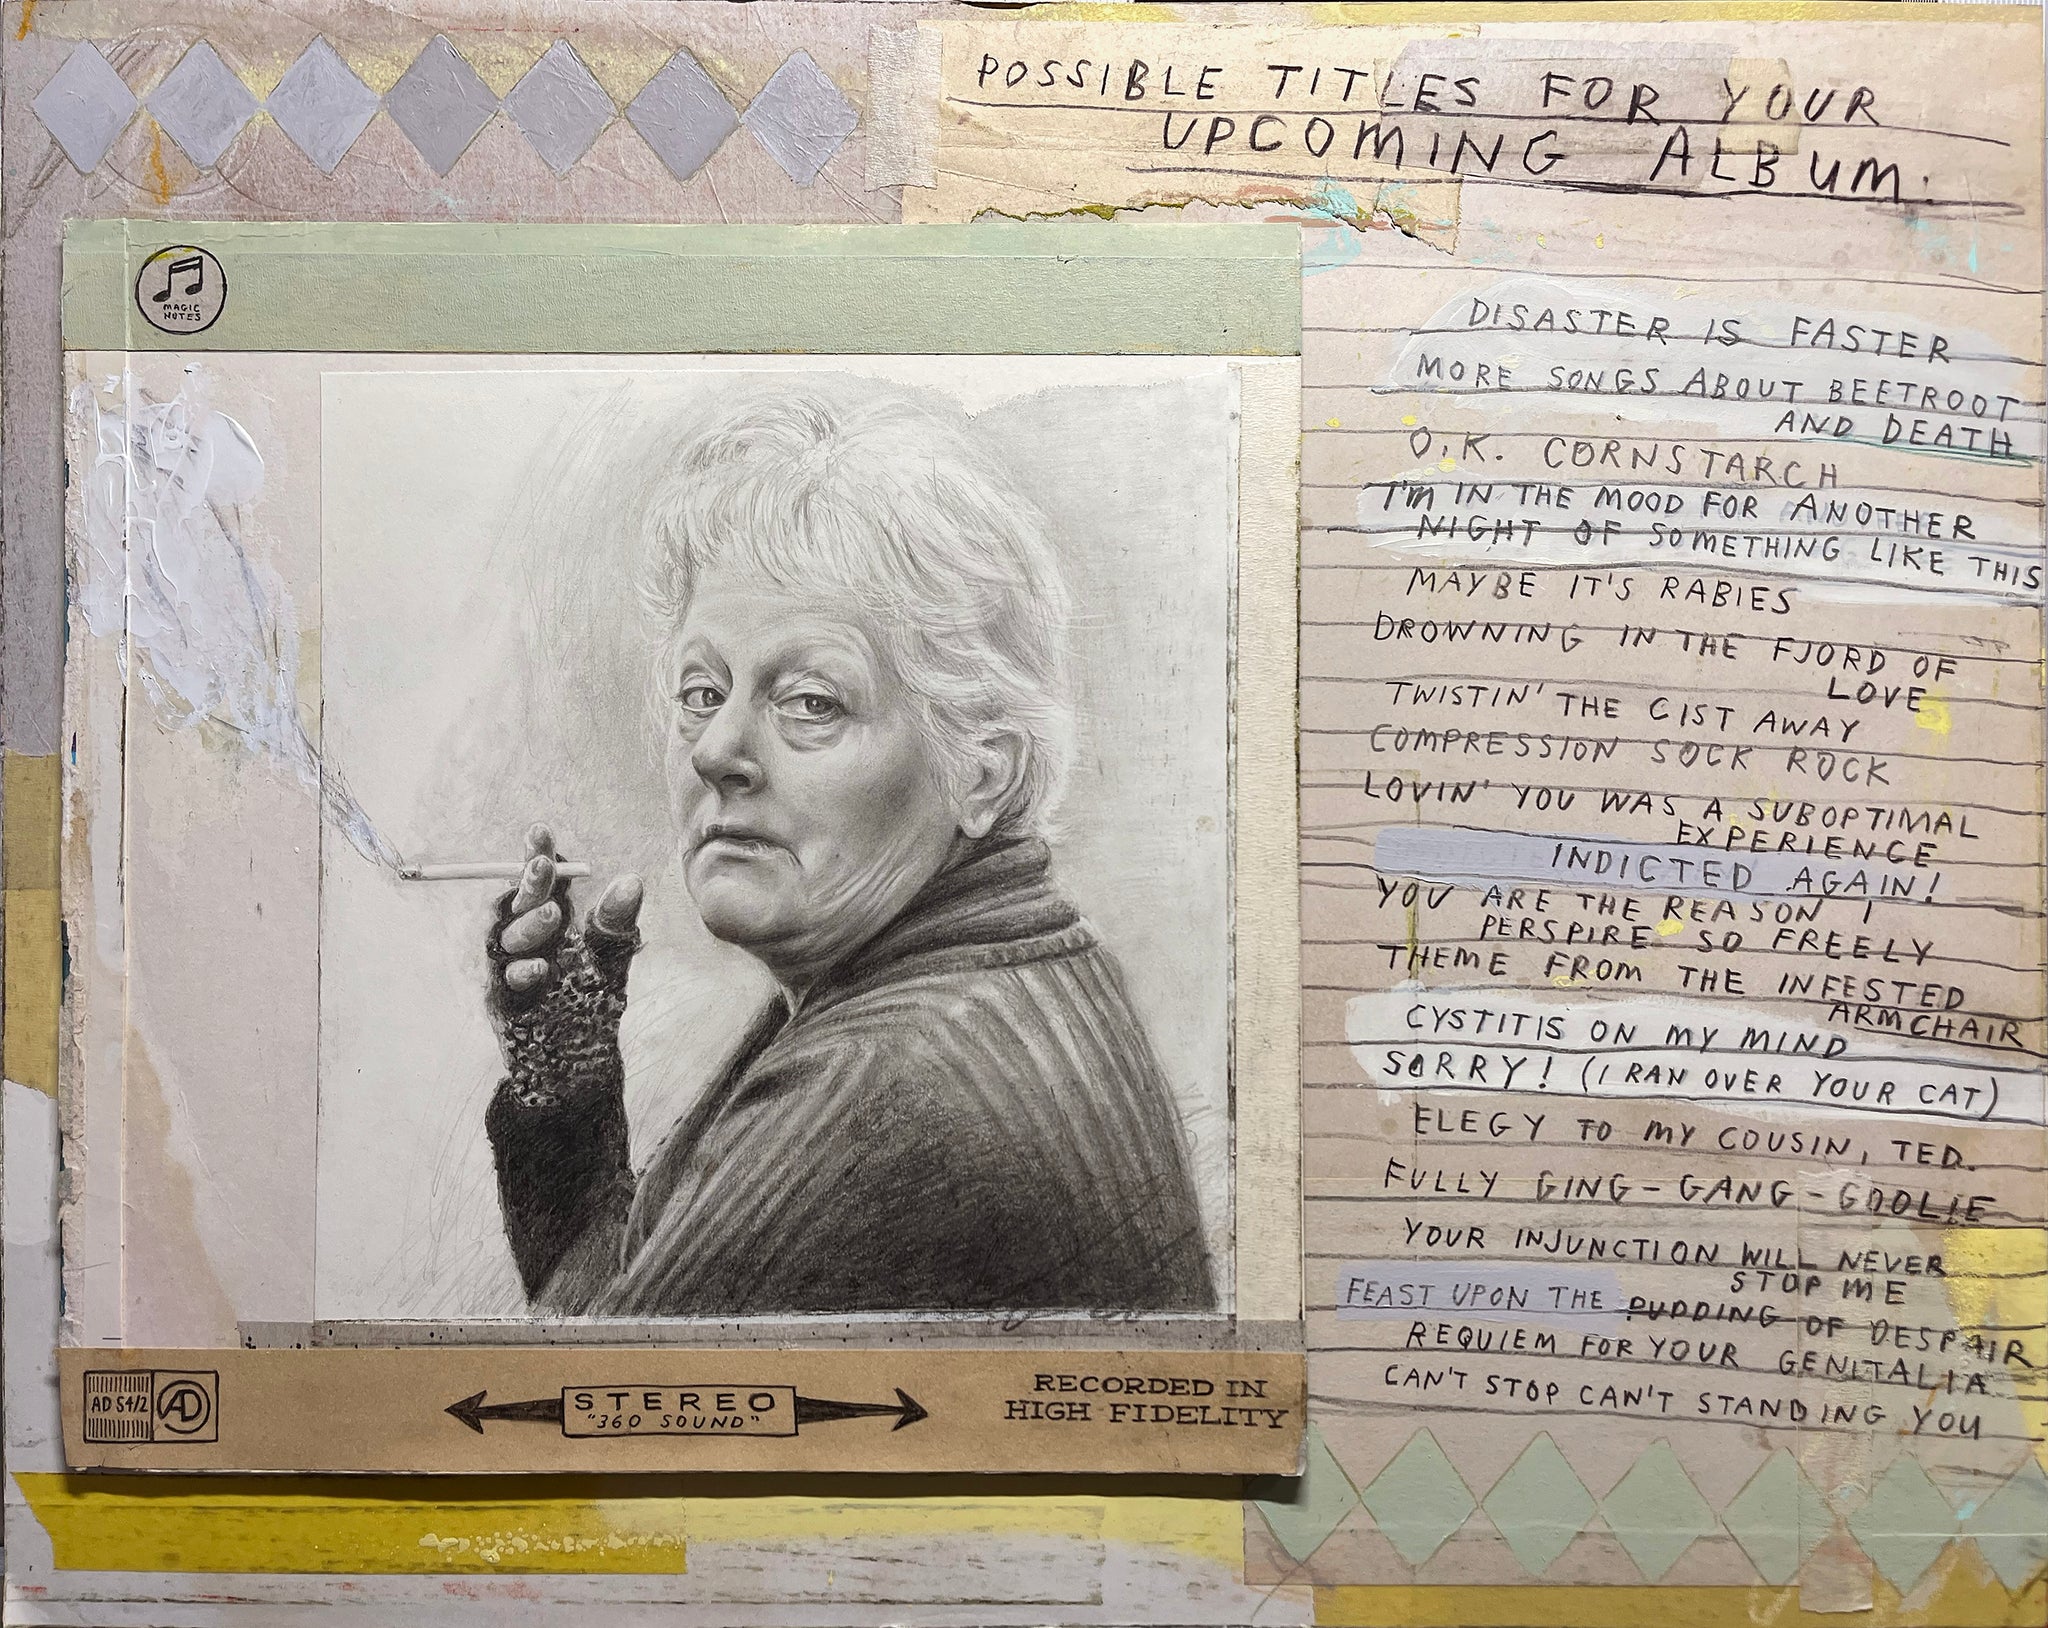 POSSIBLE TITLES FOR YOUR
UPCOMING ALBUM:
MAGIC
NOTES
DISASTER IS FASTER
MORE SONGS ABOUT BEETROOT
AND DEATH
O.K. CORNSTARCH
I'M IN THE MOOD FOR ANOTHER
NIGHT OF SOMETHING LIKE THIS
MAYBE IT'S RABIES
DROWNING IN THE FJORD OF
LOVE
TWISTIN' THE CIST AWAY
COMPRESSION SOCK ROCK
LOVIN' YOU WAS A SUBOPTIMAL
EXPERIENCE
INDICTED AGAIN!
YOU ARE THE REASON I
PERSPIRE SO FREELY
THEME FROM THE INFESTED
ARMCHAIR
CYSTITIS ON MY MIND
SORRY! (I RAN OVER YOUR CAT)
ELEGY TO MY COUSIN, TED.
FULLY GING-GANG-GOOLIE
YOUR INJUNCTION WILL NEVER
STOP ME
FEAST UPON THE PUDDING OF DESPAIR
REQUIEM FOR YOUR GENITALIA
CAN'T STOP CAN'T STANDING YOU
AD S4/2 AD
STEREO
"360 SOUND"
RECORDED IN
HIGH FIDELITY